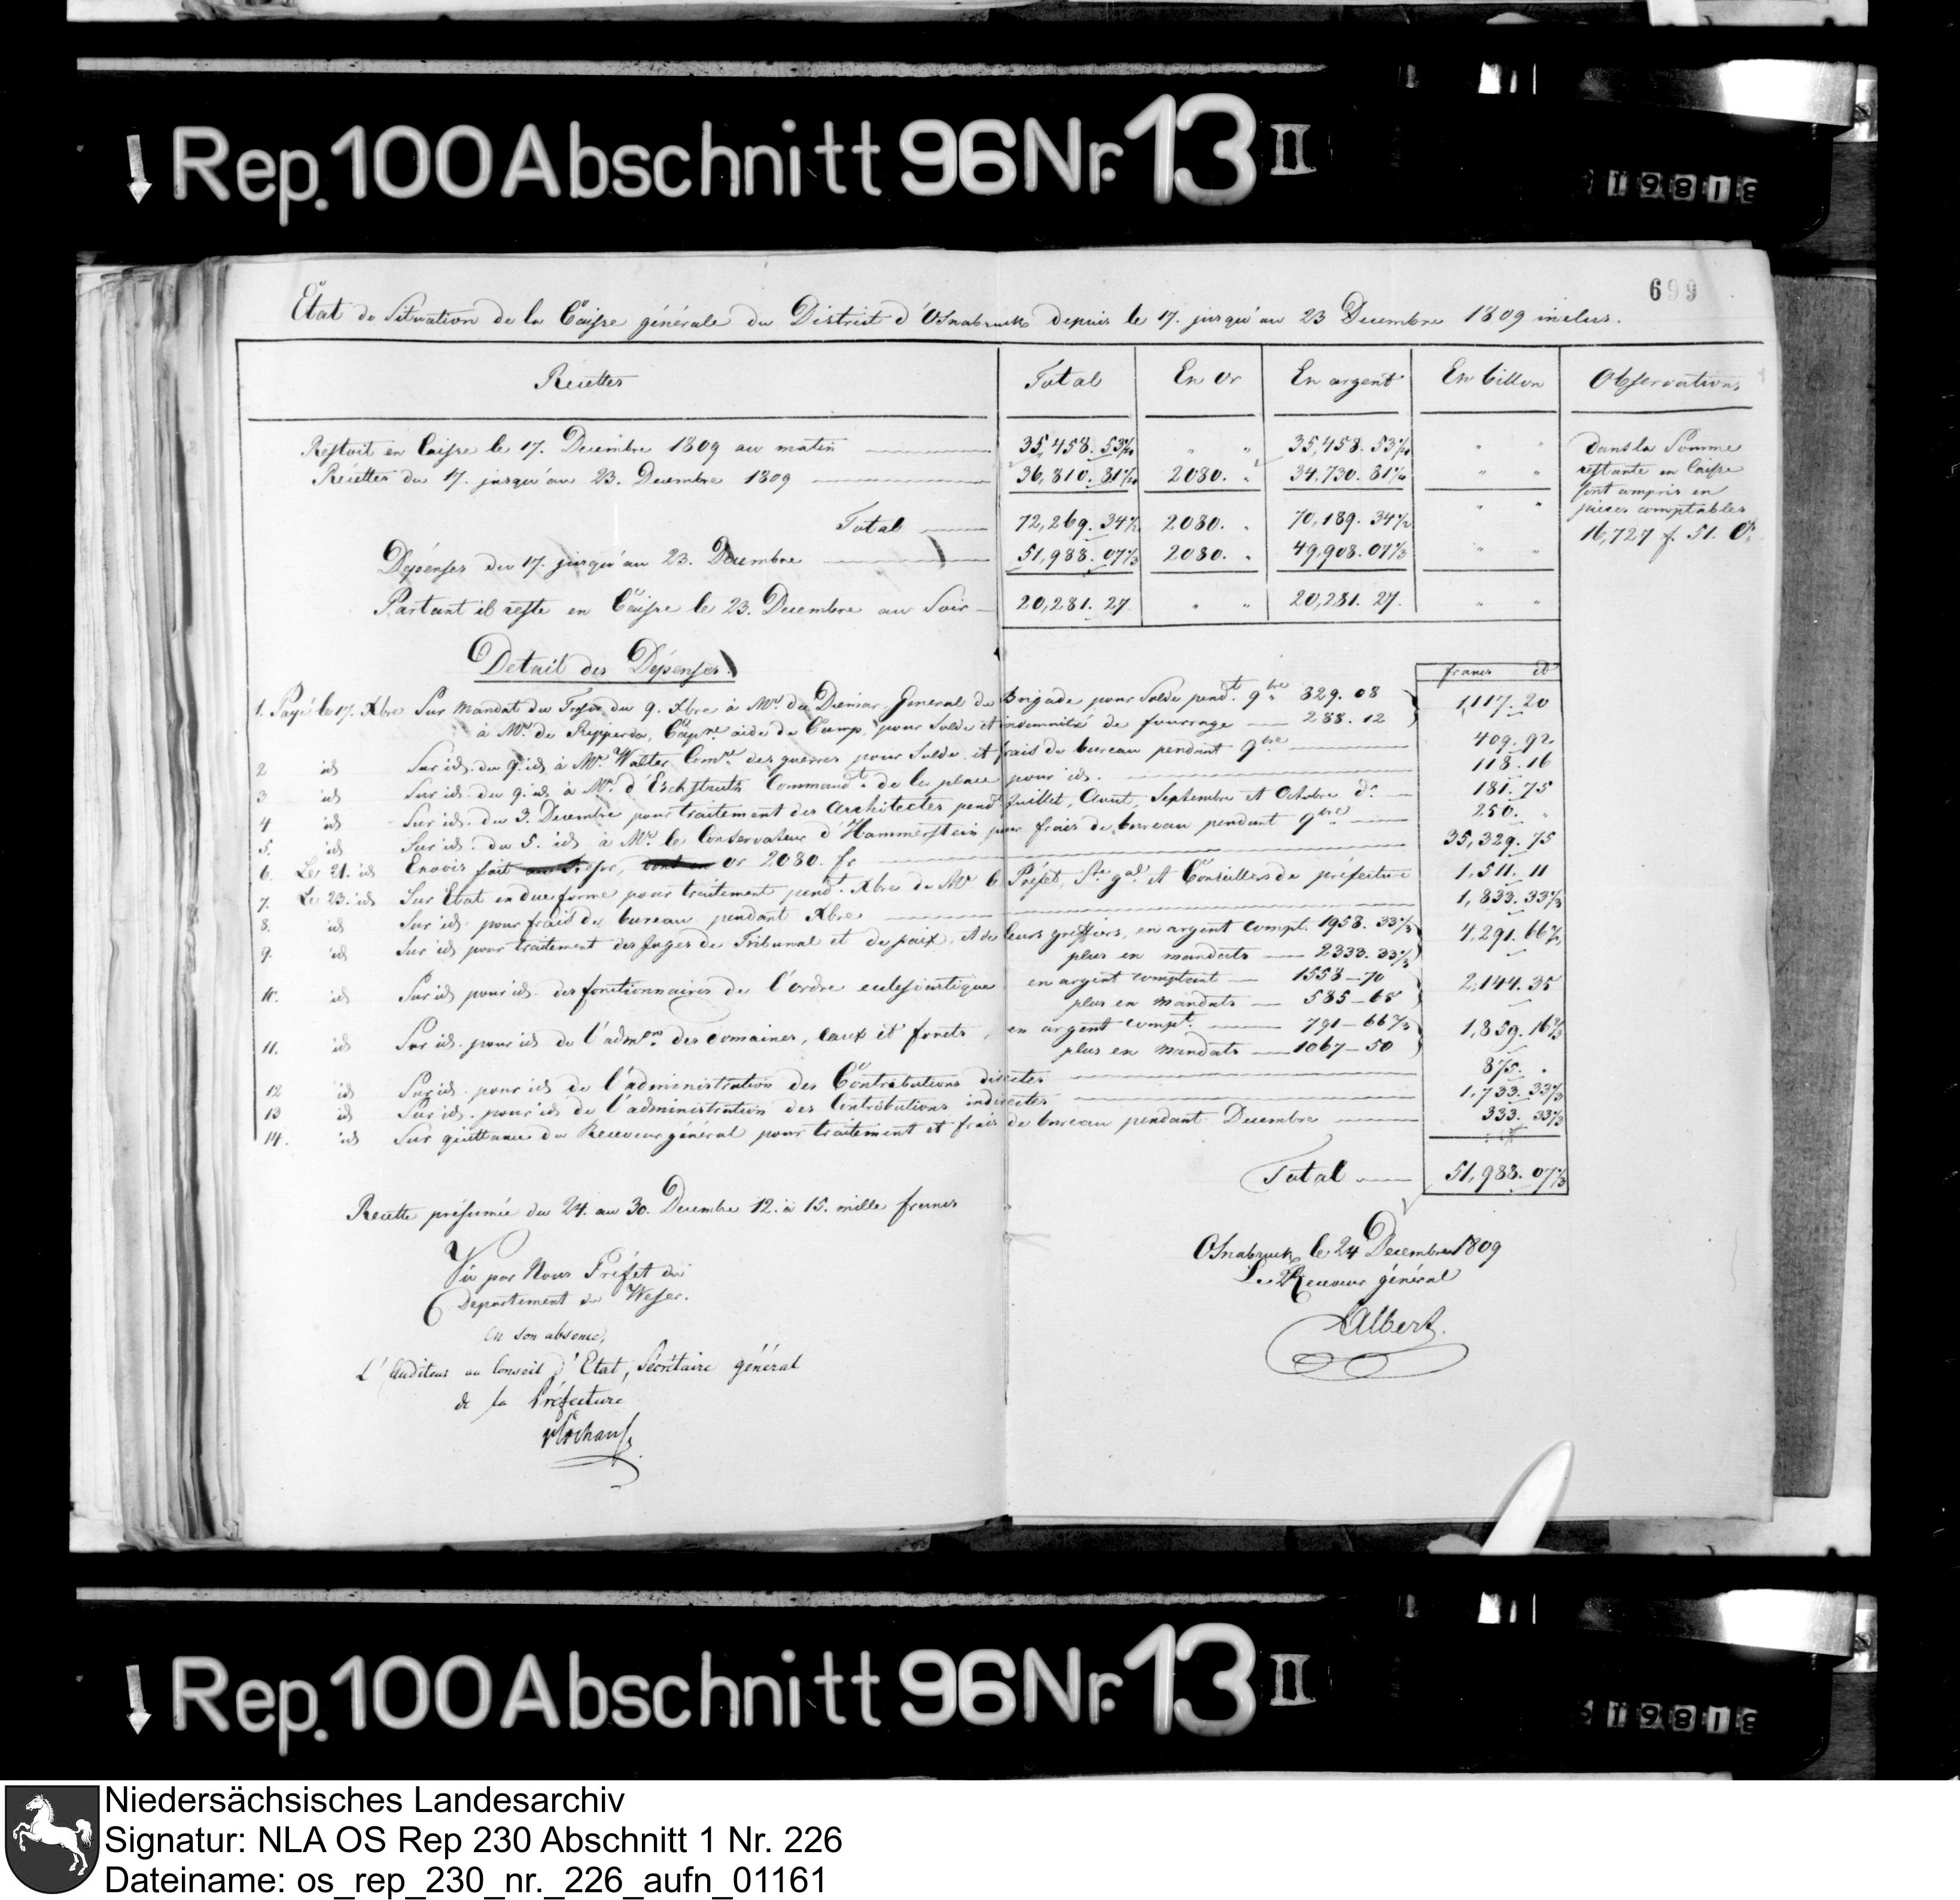 Rep. 100 Abschnitt 96 Nr. 13 II
699
Etat de Situation de la Caisse générale du District d'Osnabruck depuis le 17. jusqu'au 23 Decembre 1809 inclus.
Récettes Total En or En argent En billon Observations
Restoit en Caisse le 17. Decembre 1809 au matin 35,458. 53 " " 35,458. 53 " "
Récettes du 17. jusqu'au 23. Decembre 1809 36,810. 81 2080. " 34,730. 81 " "
Total 72,269. 34 2080. " 70,189. 34 " "
Dépenses du 17. jusqu'au 23. Decembre 51,988. 07 1/3 2080. " 49,908. 07 1/3 " "
Partant il reste en Caisse le 23. Decembre au Soir 20,281. 27. " " 20,281. 27. " "
dans la Somme
restante en Caisse
sont compris en
pieces comptables
16,727 f. 51. Cs
Detail des Dépenses.
francs Cs
1. Payé le 17. Xbre Sur Mandat du Tresor du 9. Xbre à Mr. de Diemar General de Brigade pour Solde pendt. 9bre 829. 08
à Mr. de Ripperda, Capne. aide de Camp, pour Solde et indemnité de fourrage 288. 12 1,117. 20
2 id Sur id. du 9. id à Mr. Walter Comre. des guerres pour Solde et frais de bureau pendant 9bre 409. 92
3 id Sur id. du 9. id à Mr. d' Commandt. de la place pour id. 118. 16
4 id Sur id. du 3. Decembre pour traitement des Architectes pendt Juillet, Aout, Septembre et Octobre do. 181. 75
5. id Sur id. du 5. id à Mr. le Conservateur d'Hammerstein pour frais de bureau pendant 9bre 250. "
6. Le 21. id Envois fait au Tresor, or 2080. fr 35,329. 75
7. Le 23. id Sur Etat en due forme pour traitement pendt. Xbre de Mr. le Préfet, Sre. gal. et Conseillers de préfecture 1,511. 11
8. id Sur id. pour frais de bureau pendant Xbre 1,833. 33 1/3
9. id Sur id pour traitement des Juges de Tribunal et de paix, et de leurs greffiers, en argent compt. 1958. 33 1/3
plus en mandats 2333. 33 1/3 4,291. 66 2/3
10. id Sur id pour id. des fonctionnaires de l'ordre eclesiastique en argent comptant 1558 – 70
plus en mandats 585 – 65 2,144. 35
11. id Sur id. pour id de l'admon. des domaines, eaux et forets, en argent compt. 791 – 66 2/3
plus en Mandats 1067 – 50 1,859. 16 2/3
12 id Sur id. pour id de l'administration des Contributions directes 875. "
13 id Sur id. pour id de l'administration des Contributions indirectes 1,733. 33 1/3
14. id Sur quittance du Receveur général pour traitement et frais de bureau pendant Decembre 333. 33 1/3
Total 51,988. 07 1/3
Recette présumée du 24. au 30. Decembre 12. à 15. mille francs
Vu par Nous Préfet du
Departement du Weser.
en son absence,
L'Auditeur au Conseil d'Etat, Sécrétaire général
de la Préfecture
Osnabruck le 24 Decembre 1809
Le Receveur général
Albert.
Rep. 100 Abschnitt 96 Nr. 13 II
Niedersächsisches Landesarchiv
Signatur: NLA OS Rep 230 Abschnitt 1 Nr. 226
Dateiname: os_rep_230_nr._226_aufn_01161